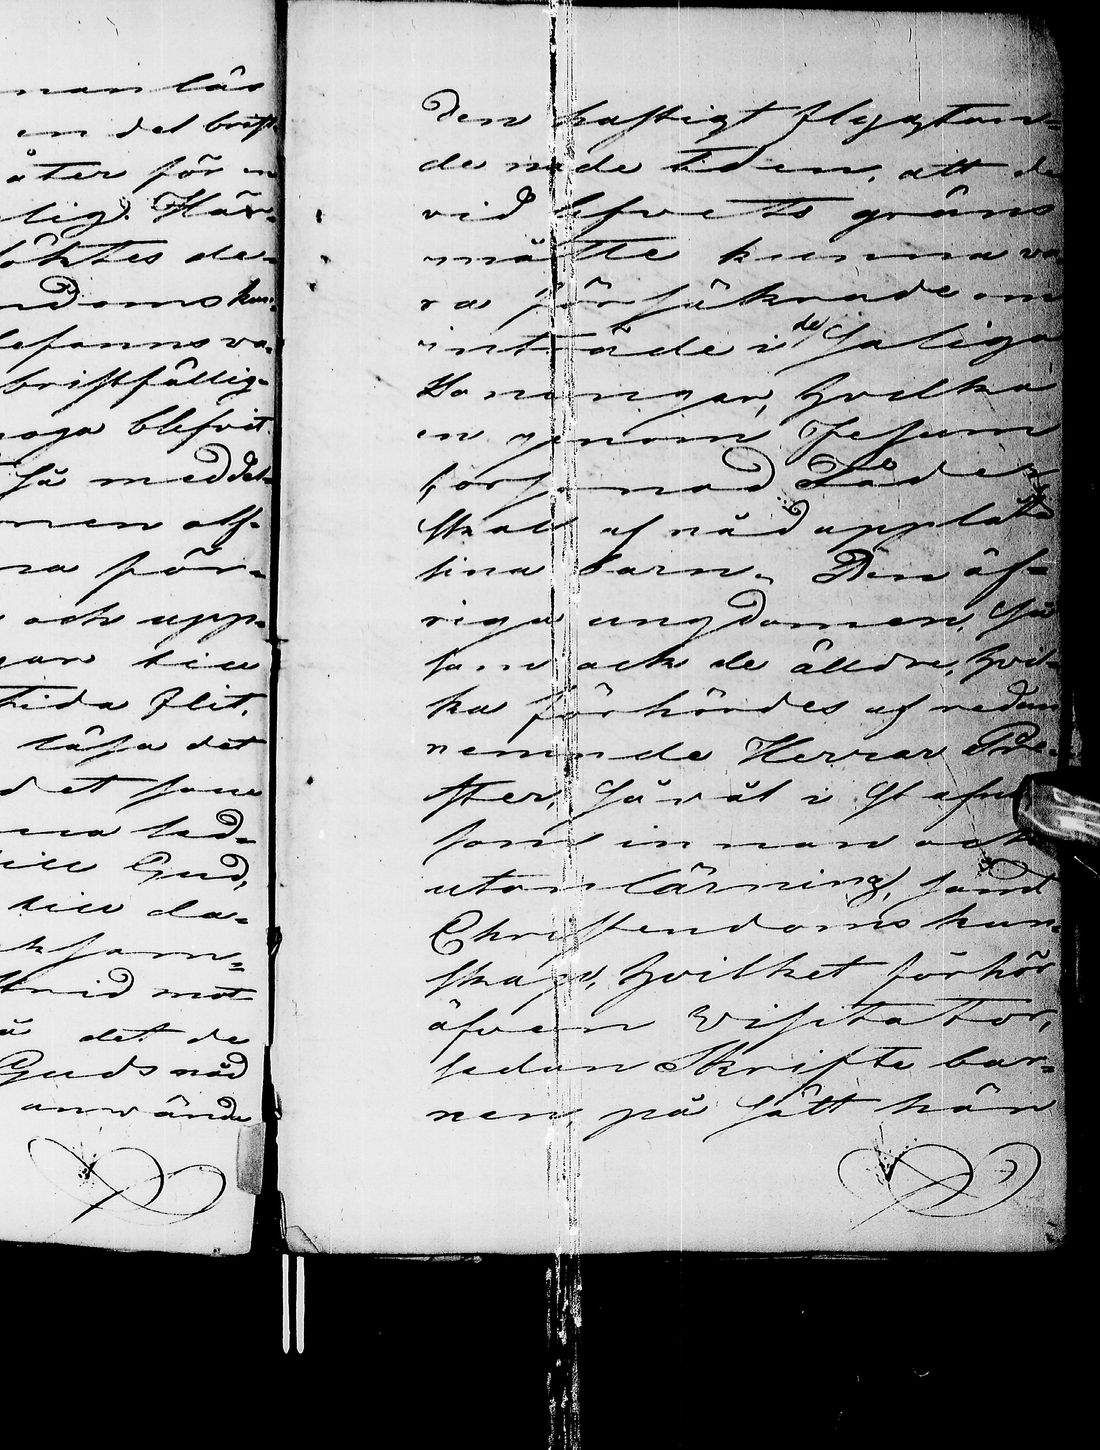 nan läs
en det brist
åter för en
lig. Här-
söktes de-
ndoms kun-
befanns va-
bristfällig-
noga blefvit
så meddel-
men alf-
na för-
och upp-
gar till
tida flit,
läsa det
det som
na led-
till Gud,
till da-
ksam-
strid mot
det de
Guds nåd
använde
den hastigt flygtan-
de nåde tiden, att de
vid lifvets gräns
måtte kunna va-
ra försäkrade om
inträde i de Saliga
Boningar, hvilka
en genom Jesum
försonad Fader
skall af nåd upplåta
sina barn. Den öf-
riga ungdomen, så
som ock de äldre, hvil-
ka förhördes af redan
nemnde Herrar Pre-
ster, så väl i
som innan och
utan lärning, samt
Christendoms kun-
skap, hvilket förhör
äfven Visitator,
sedan Skrifte bar-
nen, på sätt hän